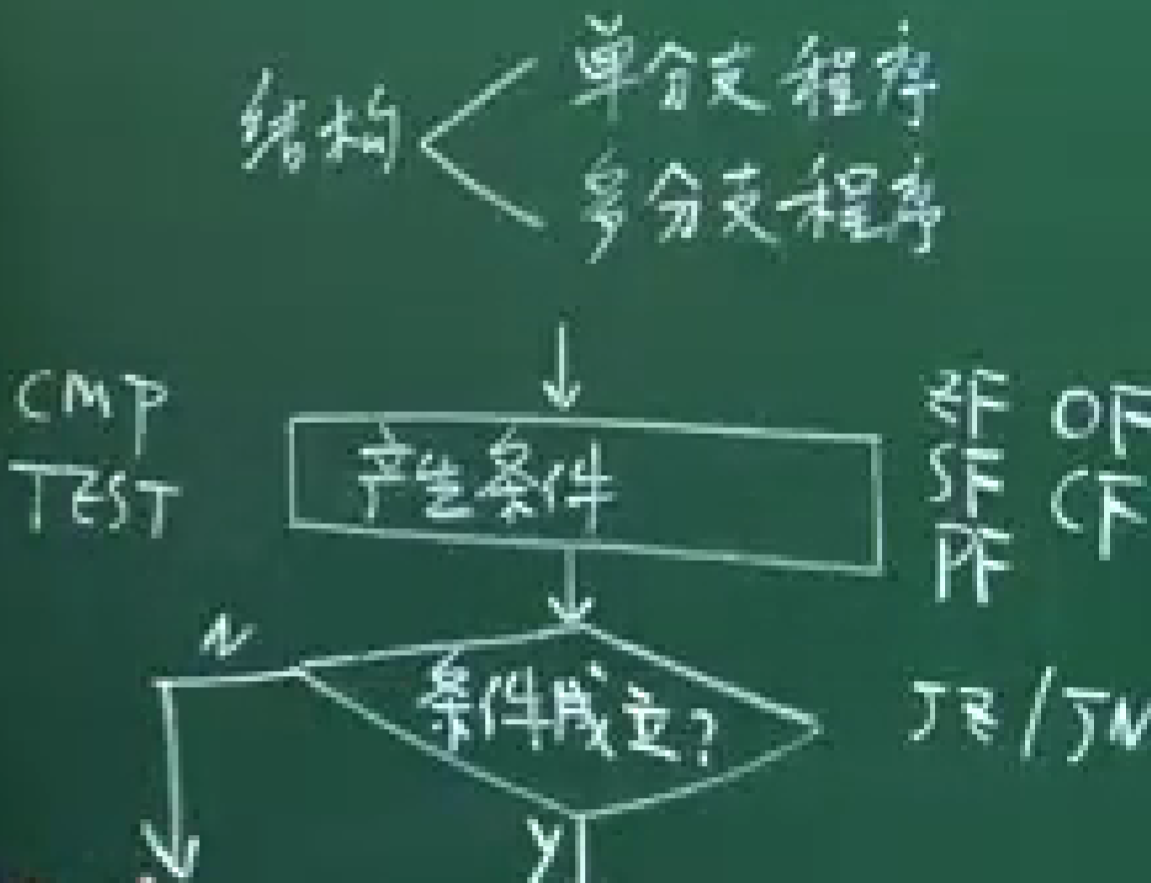 单分支程序
结构
多分支程序
CMP
TEST
产生条件
ZF OF
SF CF
PF
N
条件成立?
JZ/JN
Y